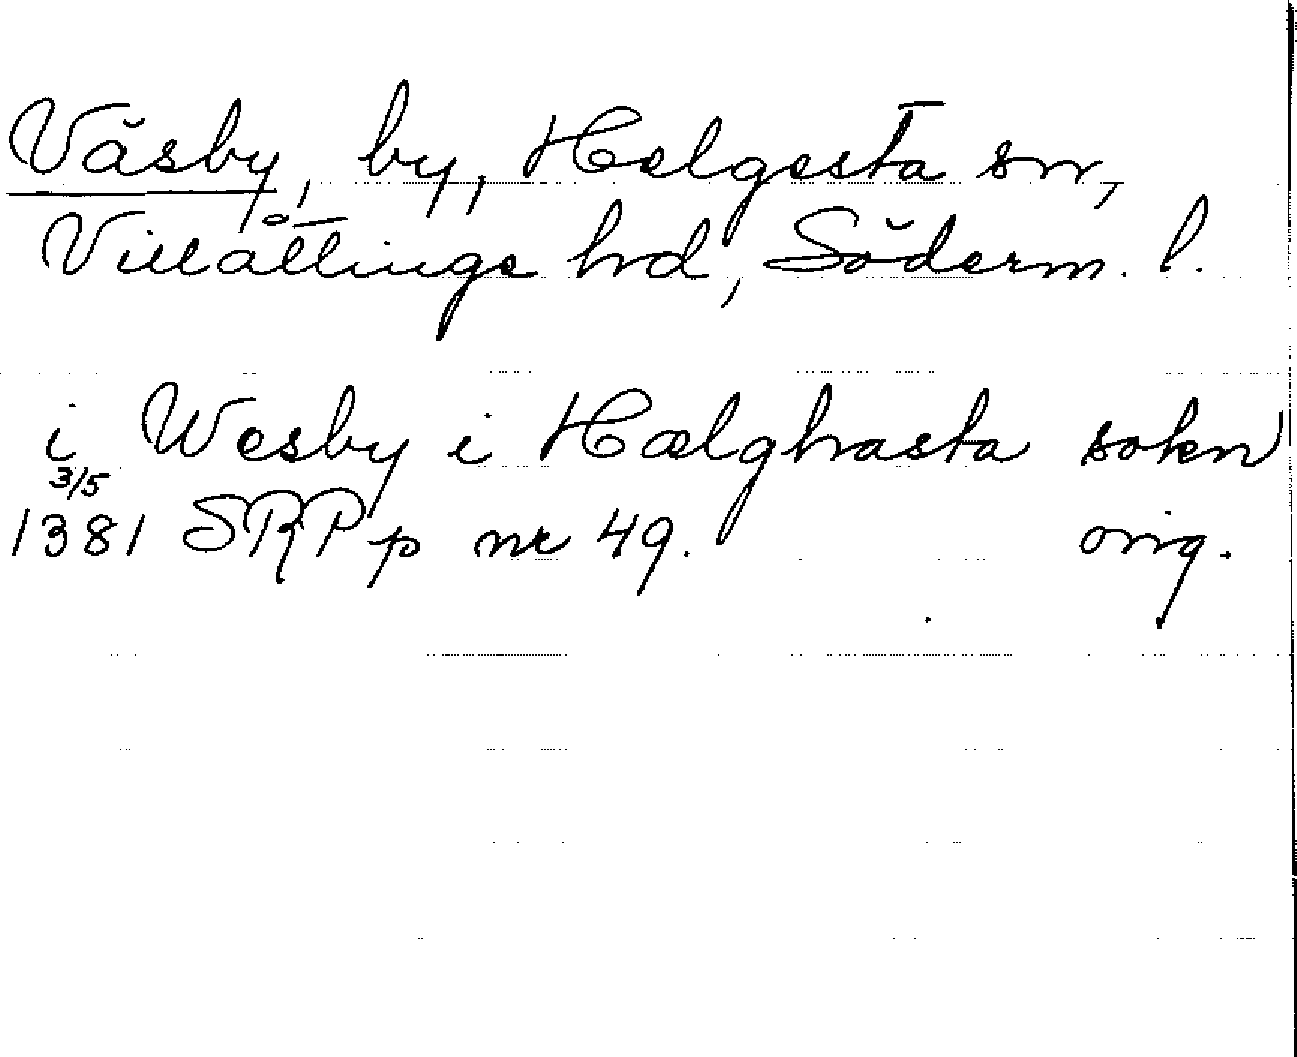 Väsby, by, Helgesta sn,
Villåttinge hrd, Söderm. l.
i Wesby i Hælghasta sokn
3/5
1381 SRPp nr 49. orig.